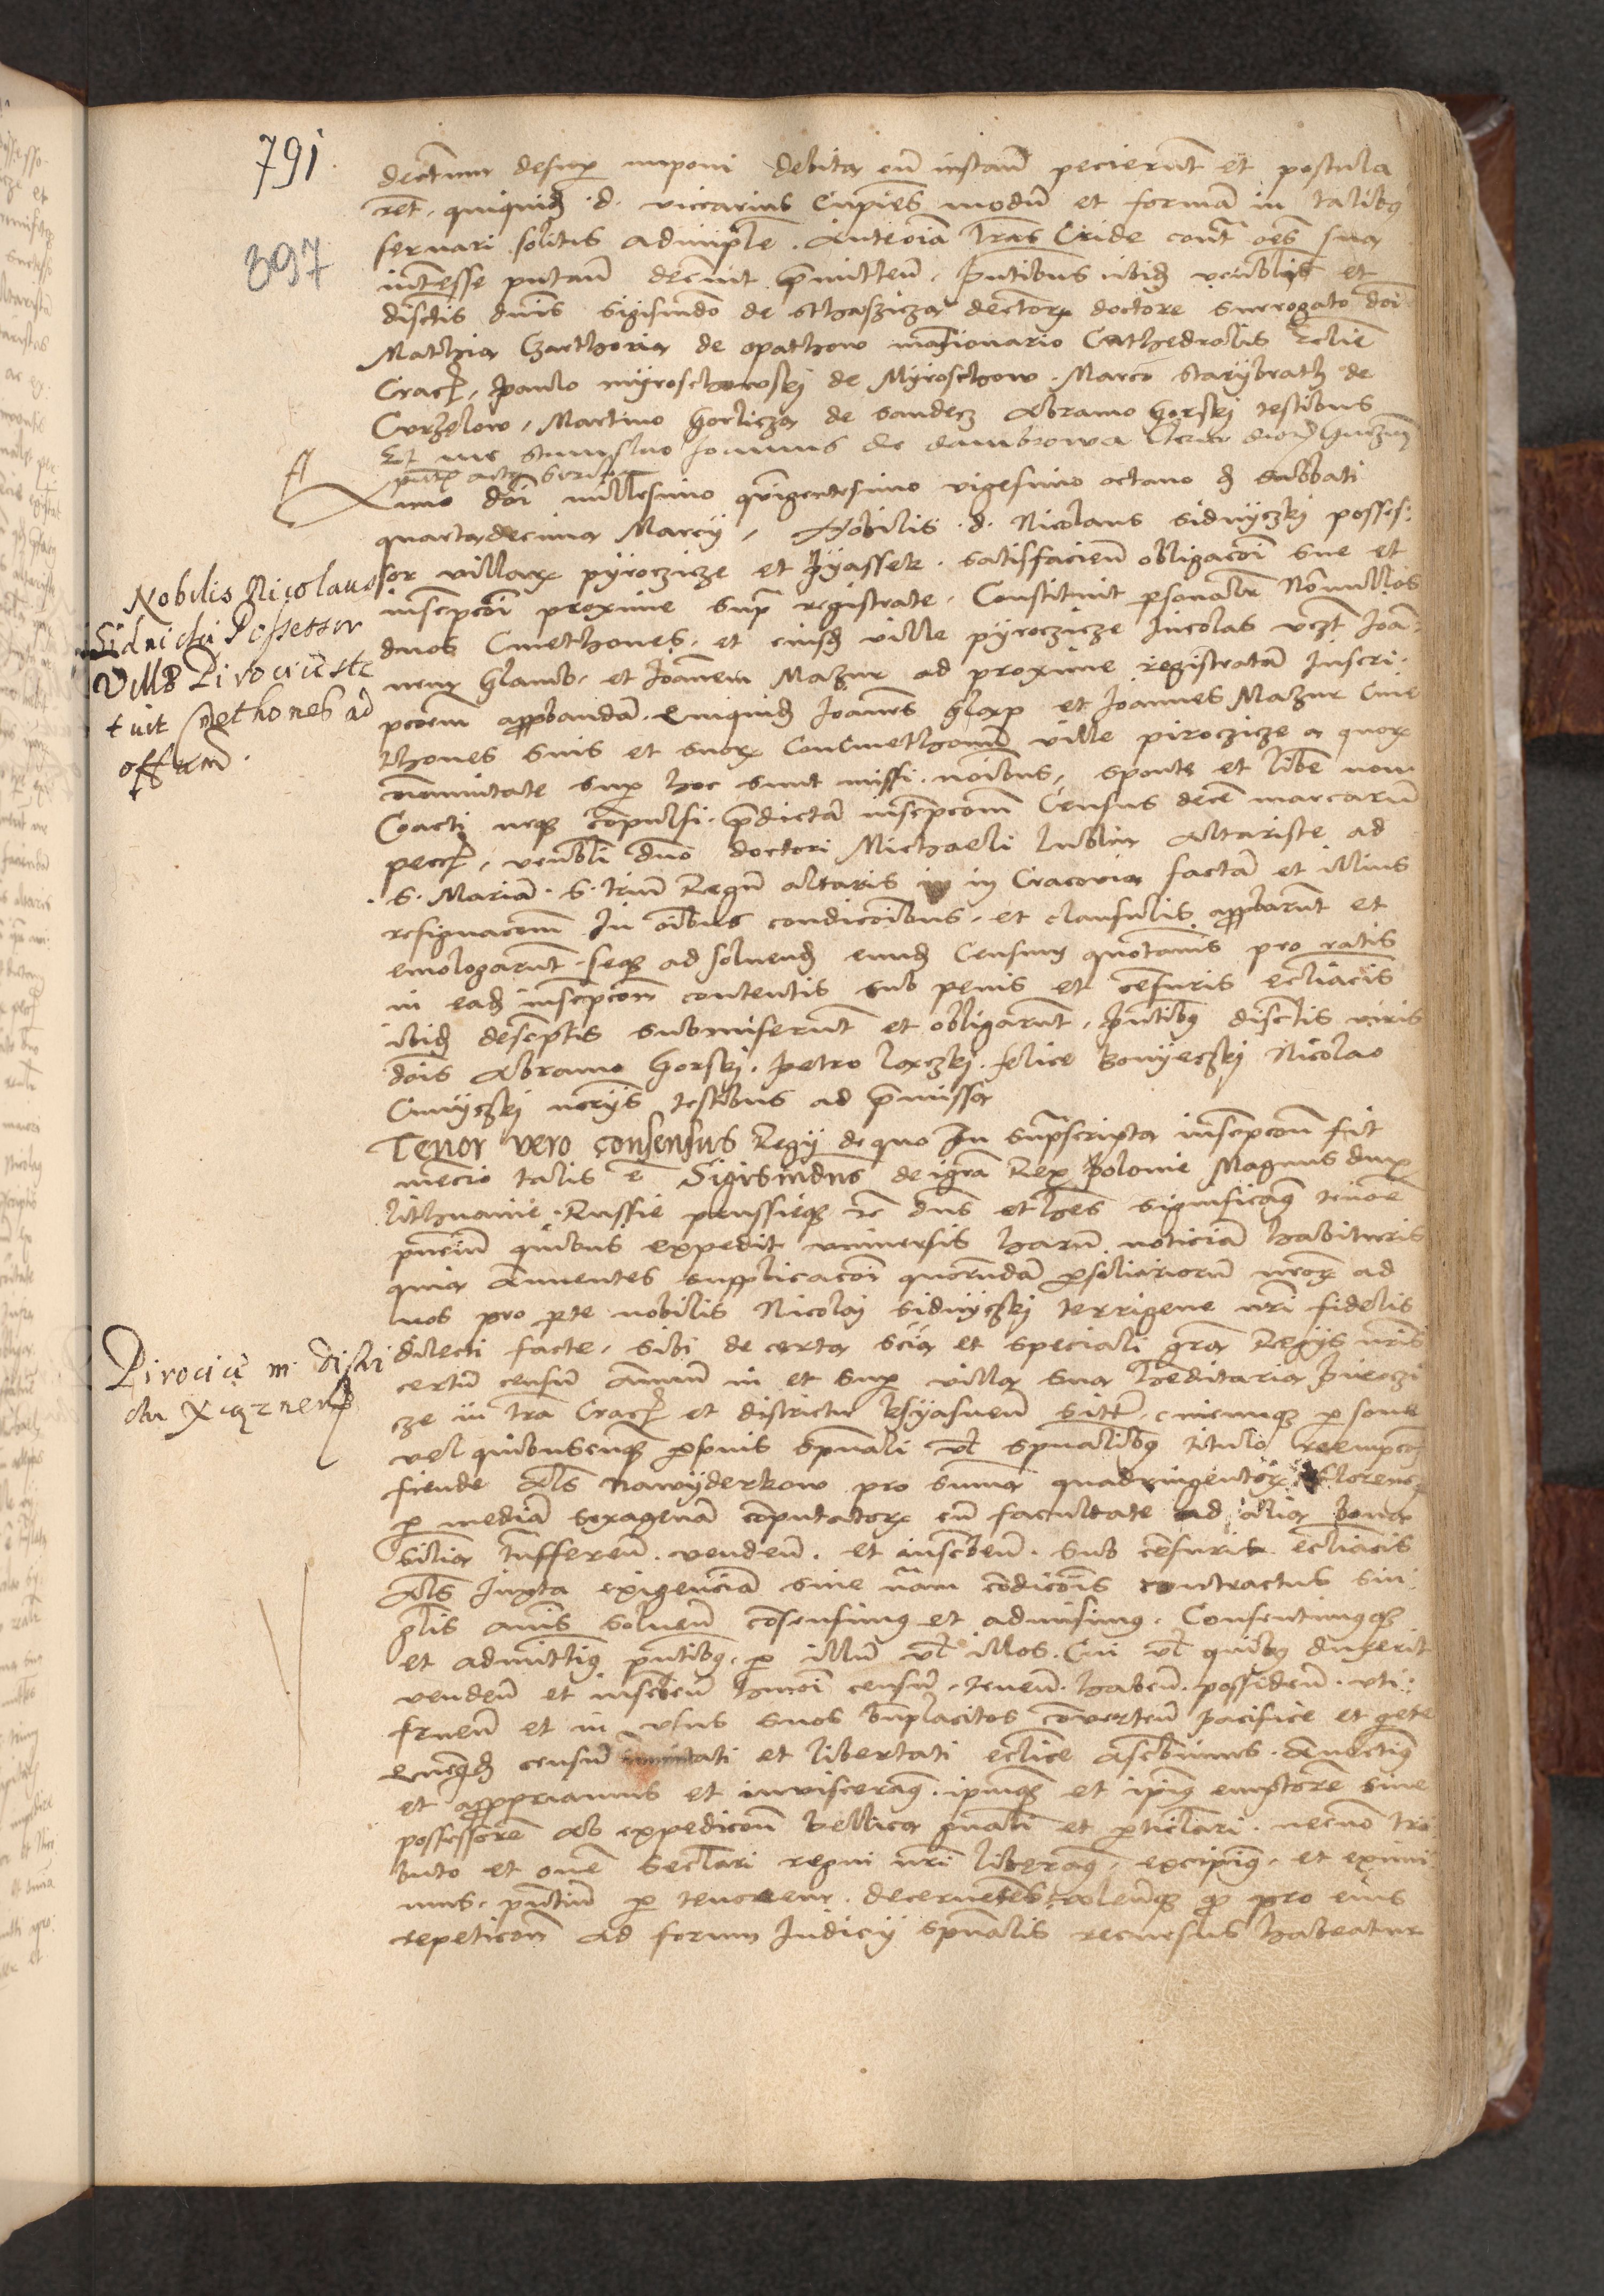 791
397
decretum desuper imponi debita cum instantia pecierunt et postula
runt. quiquidem d. viccarius Cupiens modum et formam in talibus
seruari solitis adimplere. Ante omnia literas Cride contra omnes sua
interesse putantes decreuit premittendas. presentibus ibidem venerabilibus et
discretis dominis Sigismundo de Sthaszicza decretorum doctore surrogato domini
Matthia Czarthoria de opathow mansionario Cathedralis Ecclesie
Cracoviensis, Paulo myroschowski de Myroschow. Marco starybrath de
Curzelow, Martino Gorlicza de Sandecz Abramo Gorski testibus
Et me Stanislao Joannis de dambrowa Clerico
presentis acti scriba
Anno domini millesimo quingentesimo vigesimo octauo die Sabbati
quarta decima Marcij, Nobilis d. Nicolaus Sidnyczki posses:
sor villarum pyroczicze et Pyassek. satisfaciendo obligacioni sue et
inscripcioni proxime supra registrate. Constituit personaliter Nonnullos
duos Cmethones. et eiusdem ville pyroczicze Incolas videlicet Joan
nem Glamb. et Joannem Mazur ad proxime registratam Inscri
pcionem approbandam. Quiquidem Joannes Glap et Joannes Mazur Cme
thones suis et suorum ConCmethonum ville piroczicze a quorum
communitate super hoc sunt missi nominibus, sponte et libere non
Coacti neque compulsi. predictam inscripcionem Census decem marcarum
peccunie, venerabili domino doctori Michaeli lublin Altariste ad
S. Mariam. S. trium Regum altaris in Cracovia factam et illius
resignacionem In omnibus condicionibus. et clausulis approbarunt et
emologarunt. seque ad soluendum eundem Censum quotannis pro ratis
in eadem inscripcione contentis sub penis et censuris ecclesiasticis
ibidem descriptis submiserunt et obligarunt, presentibus discretis viris
dominis Abramo Gorski. Petro laczki. felice Konyeczki Nicolao
Cmyczki notariis testibus ad premissa
Tenor vero consensus Regij de quo In suprascripta inscripcione fit
mencio talis est Sigismundus dei gratia Rex Polonie Magnus dux
lithuanie. Russie prussieque etc dominus et heres significamus tenore
presencium quibus expedit vniuersis harum noticiam habituris
quia Annuentes supplicacioni quorundam consiliariorum nostrorum ad
nos pro parte nobilis Nicolai sidnyczki terrigene nostri fidelis
dilecti facte, sibi de certa scientia et speciali gratia Regijs nostris
certum censum Annuum in et super villa sua hereditaria Piroczi
cze in terra Cracoviensi et districtu Ksyasnensi sitis, cuicunque persone
vel quibuscunque personis spirituali vel spiritualibus titulo reempcionis
fiende Alias nawyderkow pro summa quadringentorum florenorum
per mediam sexagenam computatorum cum facultate ad alia bona
similia transferendi. vendendi. et inscribendi. sub censuris ecclesiasticis
Alias Juxta exigenciam siue naturam condicionis contractus sin
gulis annis soluendi consensimus et admisimus. Consentimusque
et admittimus presentibus. per illum vel illos. Cui vel quibus duxerit
vendendum et inscribendum huiusmodi censum. tenendum. habendum. possidendum. vti:
fruendum et in vsus suos beneplacitos conuertendum pacifice et quiete
Quemquidem censum immunitati et libertati ecclesiastice Ascribimus. Annectimus
et appropriamus et inuisceramus. ipsumque et ipsius emptorem siue
possessorem Ab expedicione bellica generali et particulari. necnon tri
buto et onere seculari regni nostri liberamus, excipimus, et eximi
mus, presentium per tenorem. decernentes volentesque quod pro eius
repeticione ad forum Judicij spiritualis recursus habeatur
Nobilis Nicolaus
Sidnicki Possessor
Villæ Pirocice sti
tuit Cmethones ad
offum.
Pirocice in Distri
ctu Xiąznen